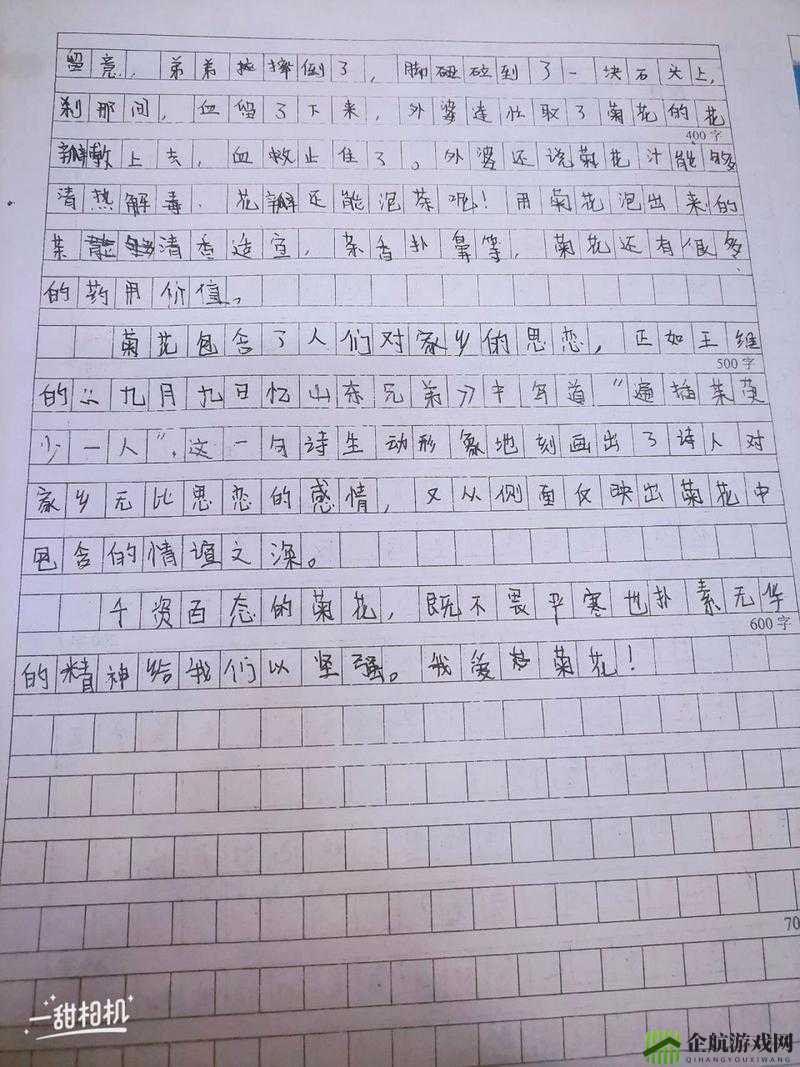 留意，弟弟摔倒了，脚碰到了一块石头上，
刹那间，血留了下来，外婆连忙取了菊花的花
400字
瓣敷上去，血救止住了。外婆还说菊花汁能够
清热解毒．花瓣还能泡茶呢！用菊花泡出来的
茶清香造宣，茶香扑鼻等，菊花还有很多
的药用价值。
菊花包含了人们对家乡的思恋，正如王维
500字
的《九月九日忆山东兄弟》中写道"遍插茱萸
少一人"．这一句诗生动形象地刻画出了诗人对
家乡无比思恋的感情，又从侧面仅映出菊花中
包含的情谊之深。
千资百态的菊花，既不畏严寒也扑素无华
600字
的精神给我们以坚强。我爱菊花！
70
一甜相机
企航游戏网
QIHANGYOUXIWANG